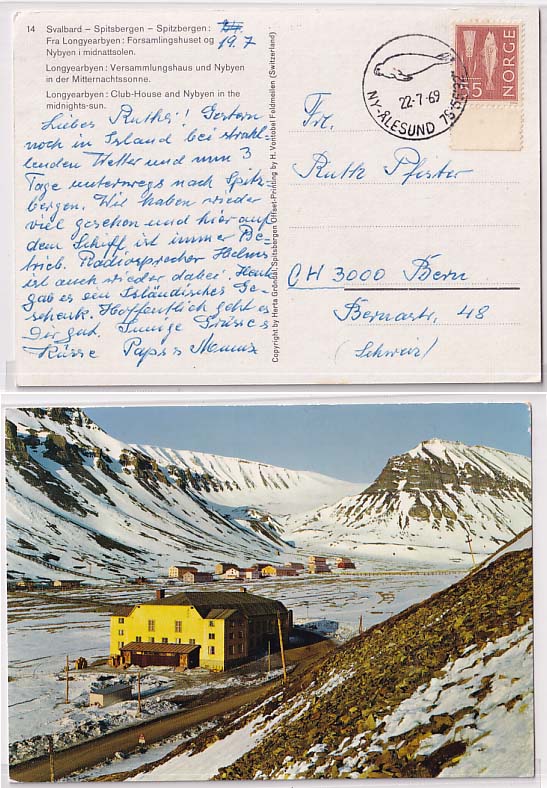 14 Svalbard – Spitsbergen – Spitzbergen:
Fra Longyearbyen: Forsamlingshuset og
Nybyen i midnattsolen.
19.7
Longyearbyen: Versammlungshaus und Nybyen
in der Mitternachtssonne.
Longyearbyen: Club-House and Nybyen in the
midnights-sun.
Liebes Ruthg! Gestern
noch in Island bei strah-
lenden Wetter und nun 3
Tage unterwegs nach Spitz-
bergen. Wir haben wieder
viel gesehen und hier auf
dem Schiff ist immer Be-
trieb. Radiosprecher
ist auch wieder dabei. Heute
gab es ein Isländisches Ge-
schenk. Hoffentlich geht es
Dir gut. Innige Grüsse
Küsse Paps Mama
Copyright by Herta Grøndal, Spitsbergen Offset-Printing by H. Vontobel Feldmeilen (Switzerland)
NY-ÅLESUND
22-7-69
NORGE
Frl.
Ruth Pfister
CH 3000 Bern
Bernastr. 48
(Schweiz)